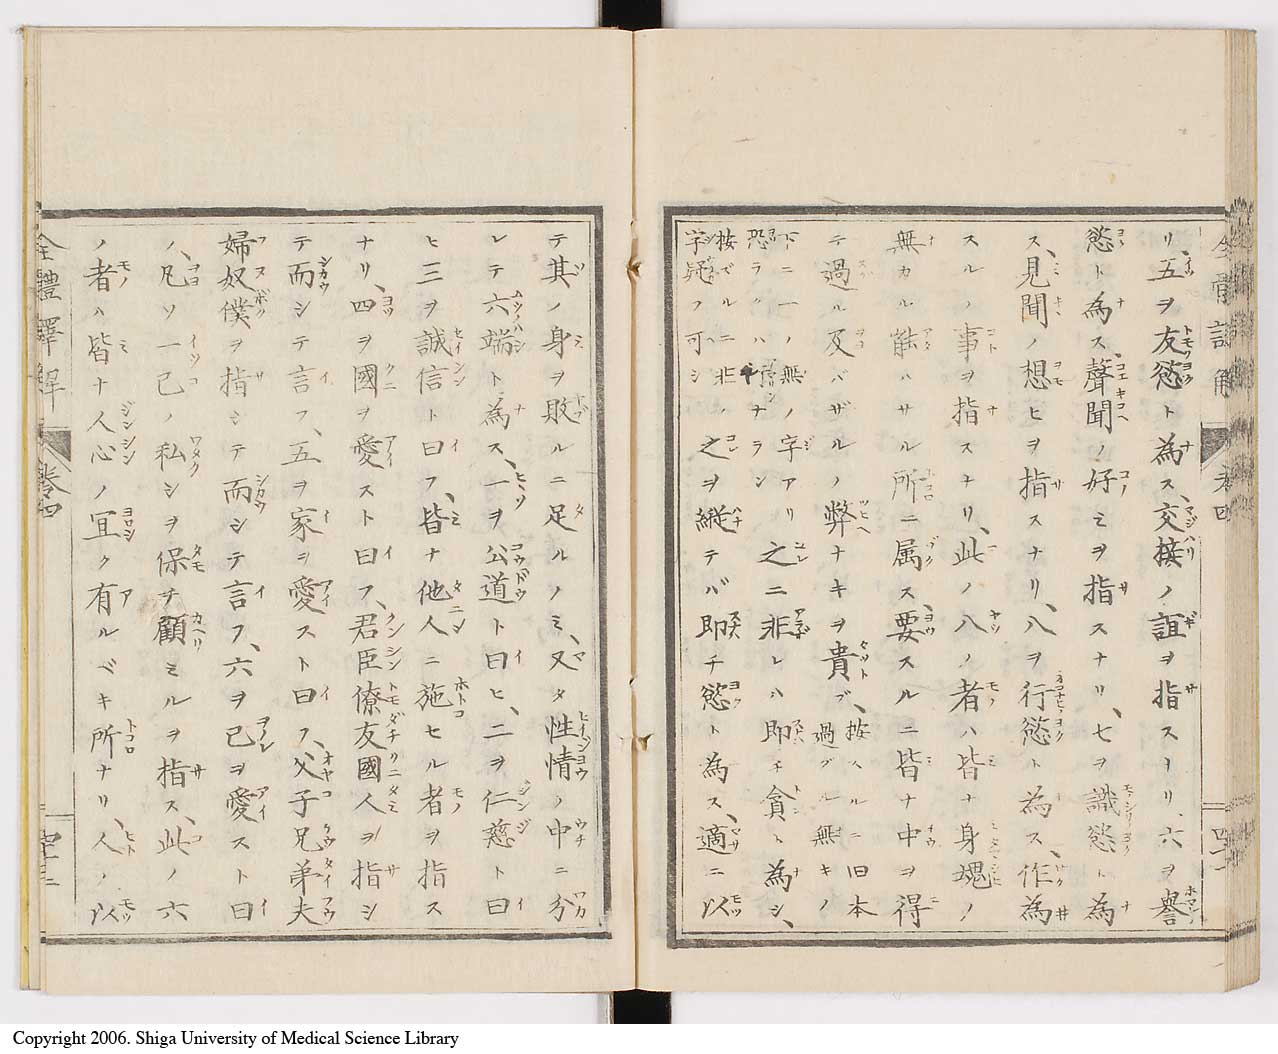 リ、五ヲ友慾ト為ス、交接ノ誼ヲ指スナリ、六ヲ譽
慾ト為ス、聲聞ノ好ミヲ指スナリ、七ヲ識慾ト為
ス、見聞ノ想ヒヲ指スナリ、八ヲ行慾ト為ス、作為
スルノ事ヲ指スナリ、此ノ八ノ者ハ皆ナ身魂ノ
無カル能ハサル所ニ属ス、要スルニ皆ナ中ヲ得
テ過ル及バザルノ弊ナキヲ貴ブ、
按スルニ旧本
過グル無キノ
下ニ一ノ無ノ字アリ
恐ラクハ衍ナラン
之ニ非レハ即チ貪ト為シ、
按ズルニ非ノ
字疑フ可シ
之ヲ縱テバ即チ慾ト為ス、適ニ以
テ其ノ身ヲ敗ルニ足ルノミ、又タ性情ノ中ニ分
レテ六端ト為ス、一ヲ公道ト曰ヒ、二ヲ仁慈ト曰
ヒ三ヲ誠信ト曰フ、皆ナ他人ニ施セル者ヲ指ス
ナリ、四ヲ國ヲ愛スト曰フ、君臣僚友國人ヲ指シ
テ而シテ言フ、五ヲ家ヲ愛スト曰フ、父子兄弟夫
婦奴僕ヲ指シテ而シテ言フ、六ヲ己ヲ愛スト曰
ノ、凡ソ一己ノ私シヲ保チ顧ミルヲ指ス、此ノ六
ノ者ハ皆ナ人心ノ冝ク有ルベキ所ナリ、人ノ以
全體譯解 卷四
Copyright 2006. Shiga University of Medical Science Library